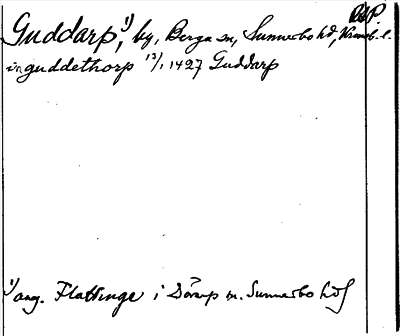 RAP.
Guddarp,¹⁾ by, Berga sn, Sunnerbo hd, Kronob. l.
in guddethorp ¹³/₁ 1427 Guddarp
¹⁾ ang. Flattinge i Dörarp sn. Sunnerbo hd